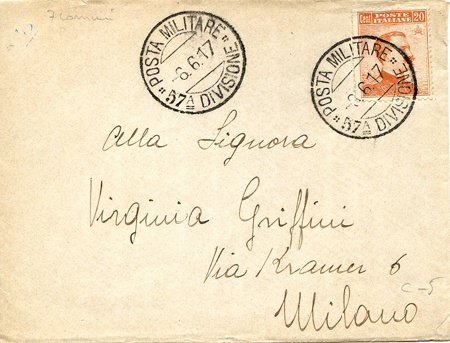 POSTA MILITARE
6.6.17
57A DIVISIONE
Cent 20
POSTE ITALIANE
POSTA MILITARE
6.6.17
57A DIVISIONE
Alla Signora
Virginia Griffini
Via Kramer 6
Milano
C-5